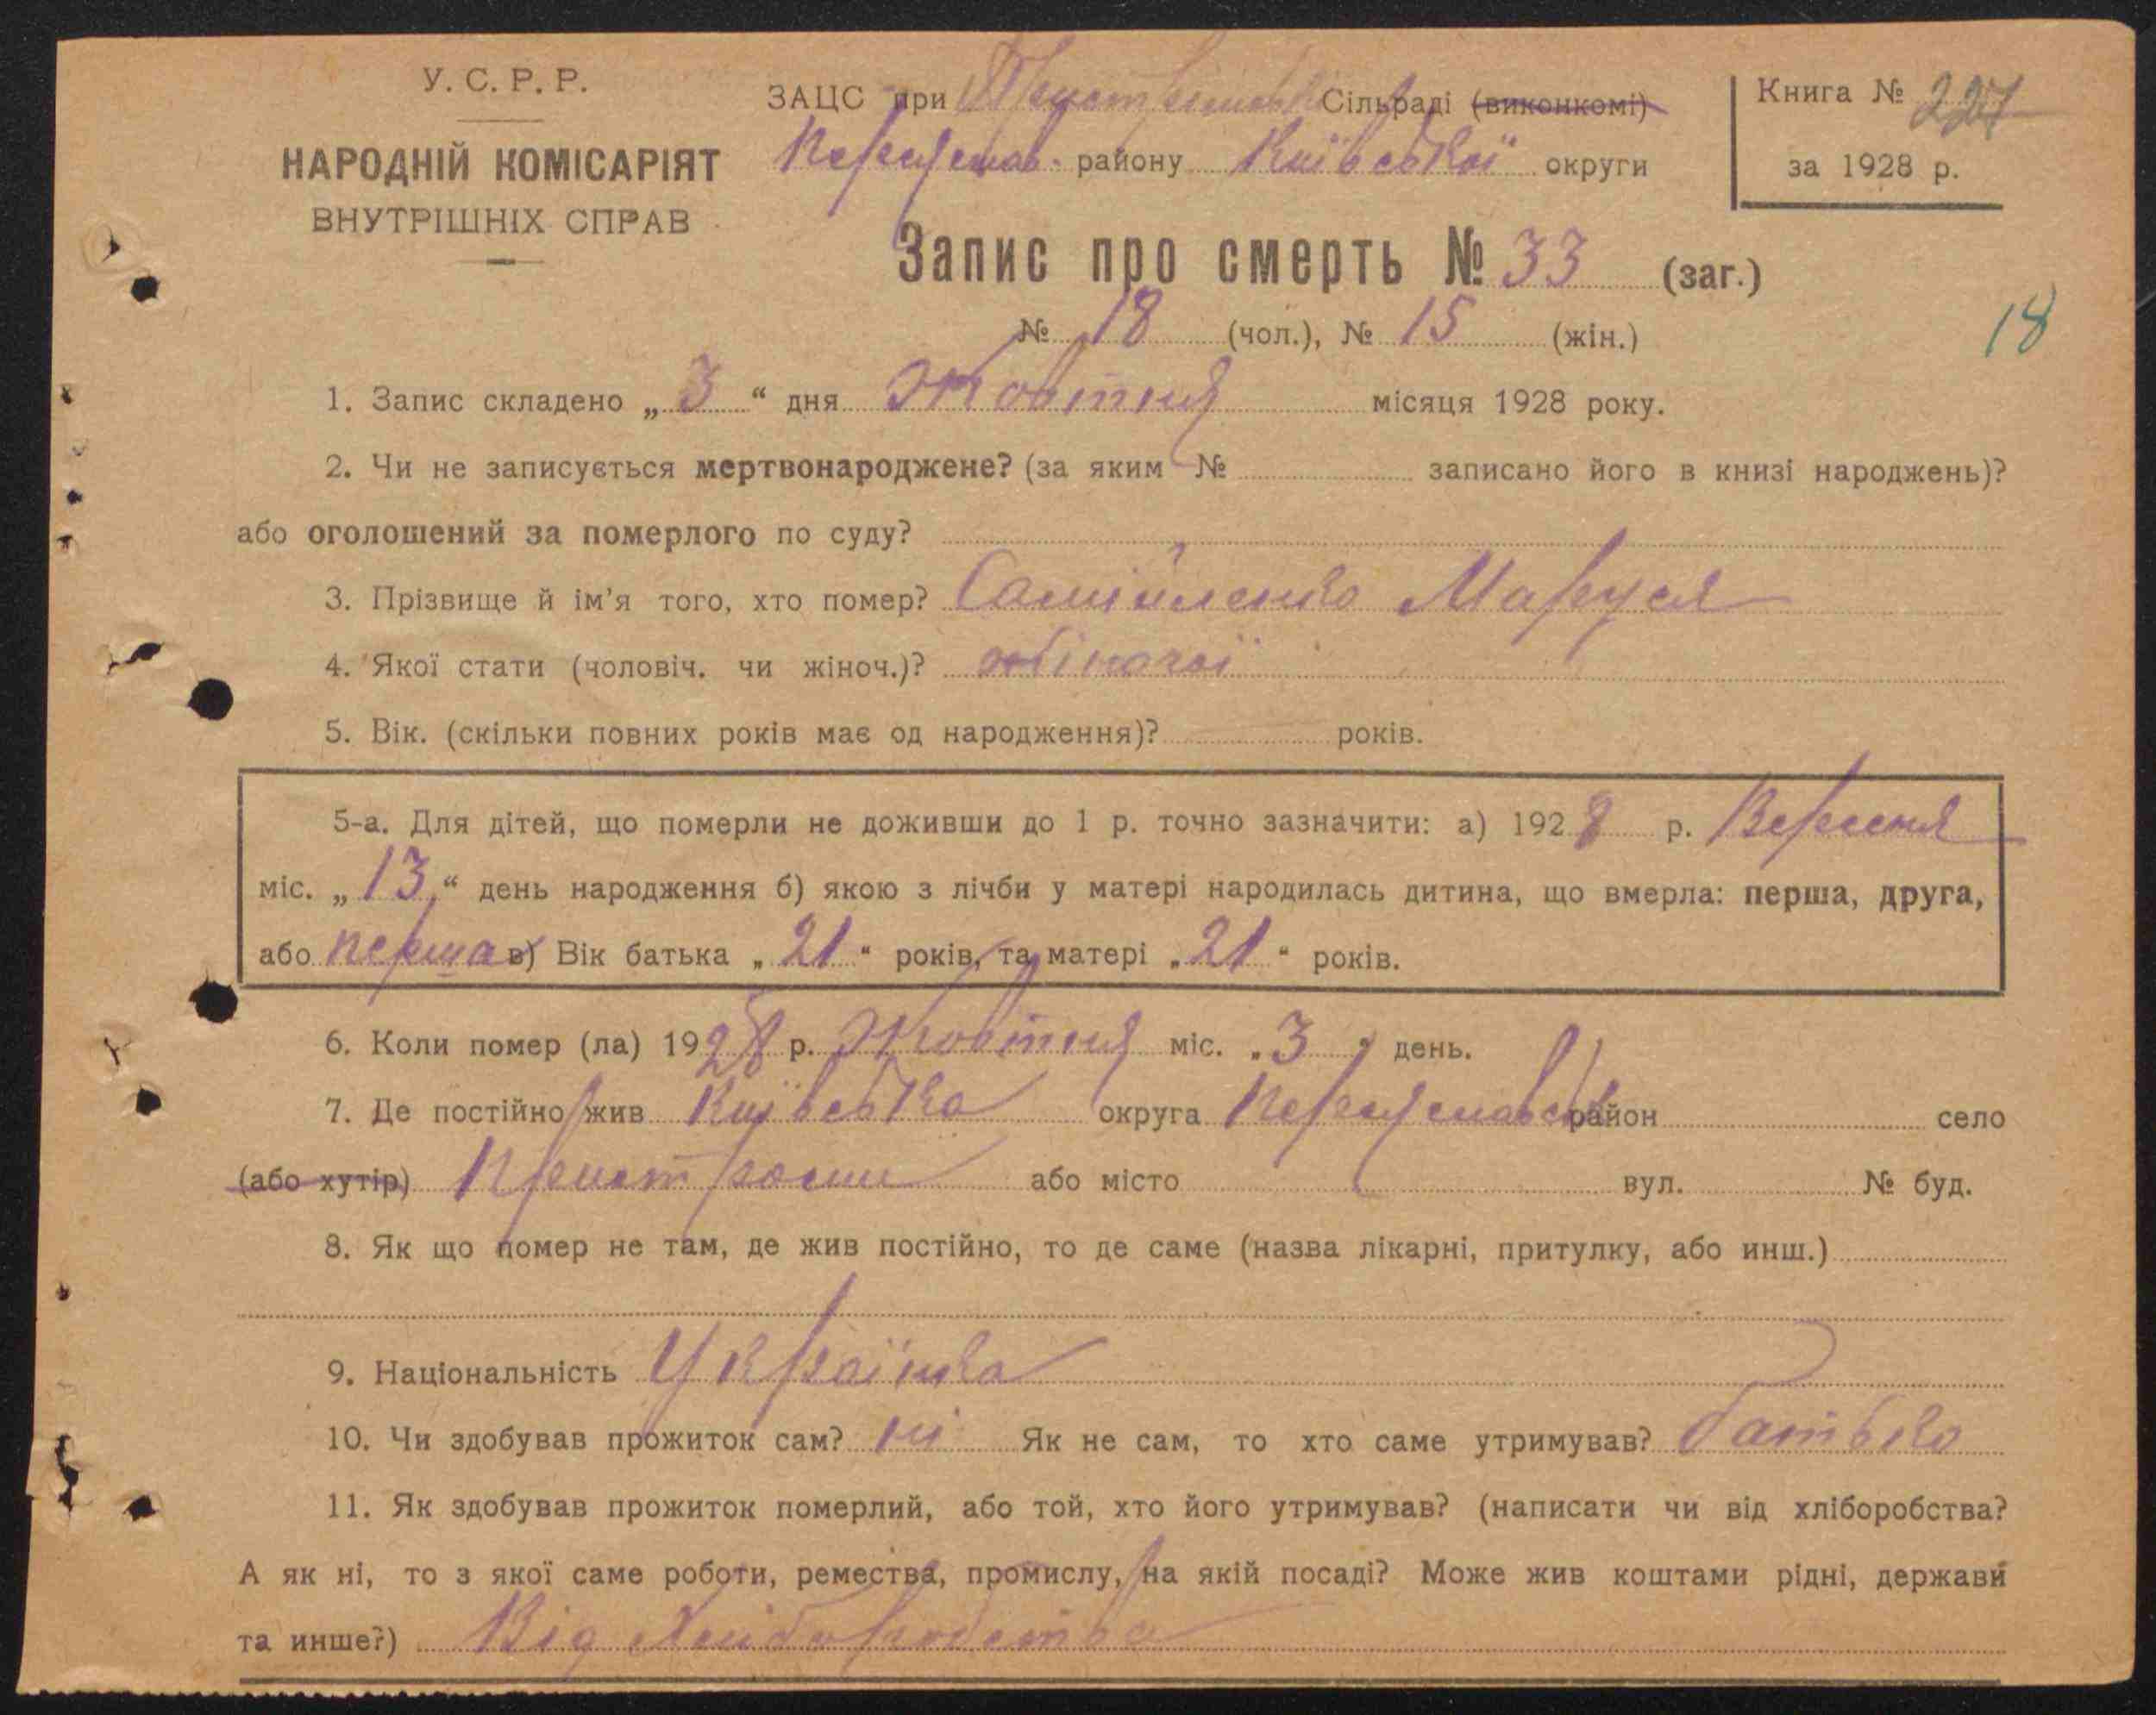 У. С. Р. Р.
НАРОДНІЙ КОМІСАРІЯТ
ВНУТРІШНІХ СПРАВ
ЗАЦС при Сільраді (виконкомі)
Переяслав. району Київської округи
Книга № 227
за 1928 р.
Запис про смерть № 33 (заг.)
№ 18 (чол.), № 15 (жін.)
18
1. Запис складено „3“ дня Жовтня місяця 1928 року.
2. Чи не записується мертвонароджене? (за яким № записано його в книзі народжень)?
або оголошений за померлого по суду?
3. Прізвище й ім'я того, хто помер? Самійленко Маруся
4. Якої стати (чоловіч. чи жіноч.)? жіночої
5. Вік. (скільки повних років має од народження)? років.
5-а. Для дітей, що померли не доживши до 1 р. точно зазначити: а) 1928 р. Вересня
міс. „13“ день народження б) якою з лічби у матері народилась дитина, що вмерла: перша, друга,
або перша в) Вік батька „21“ років, та матері „21“ років.
6. Коли помер (ла) 1928 р. Жовтня міс. „3“ день.
7. Де постійно жив Київська округа Переяславськ район село
(або хутір) Пристроми або місто вул. № буд.
8. Як що помер не там, де жив постійно, то де саме (назва лікарні, притулку, або инш.)
9. Національність Українка
10. Чи здобував прожиток сам? ні Як не сам, то хто саме утримував? батько
11. Як здобував прожиток померлий, або той, хто його утримував? (написати чи від хліборобства?
А як ні, то з якої саме роботи, ремества, промислу, на якій посаді? Може жив коштами рідні, держави
та инше?) Від Хліборобства